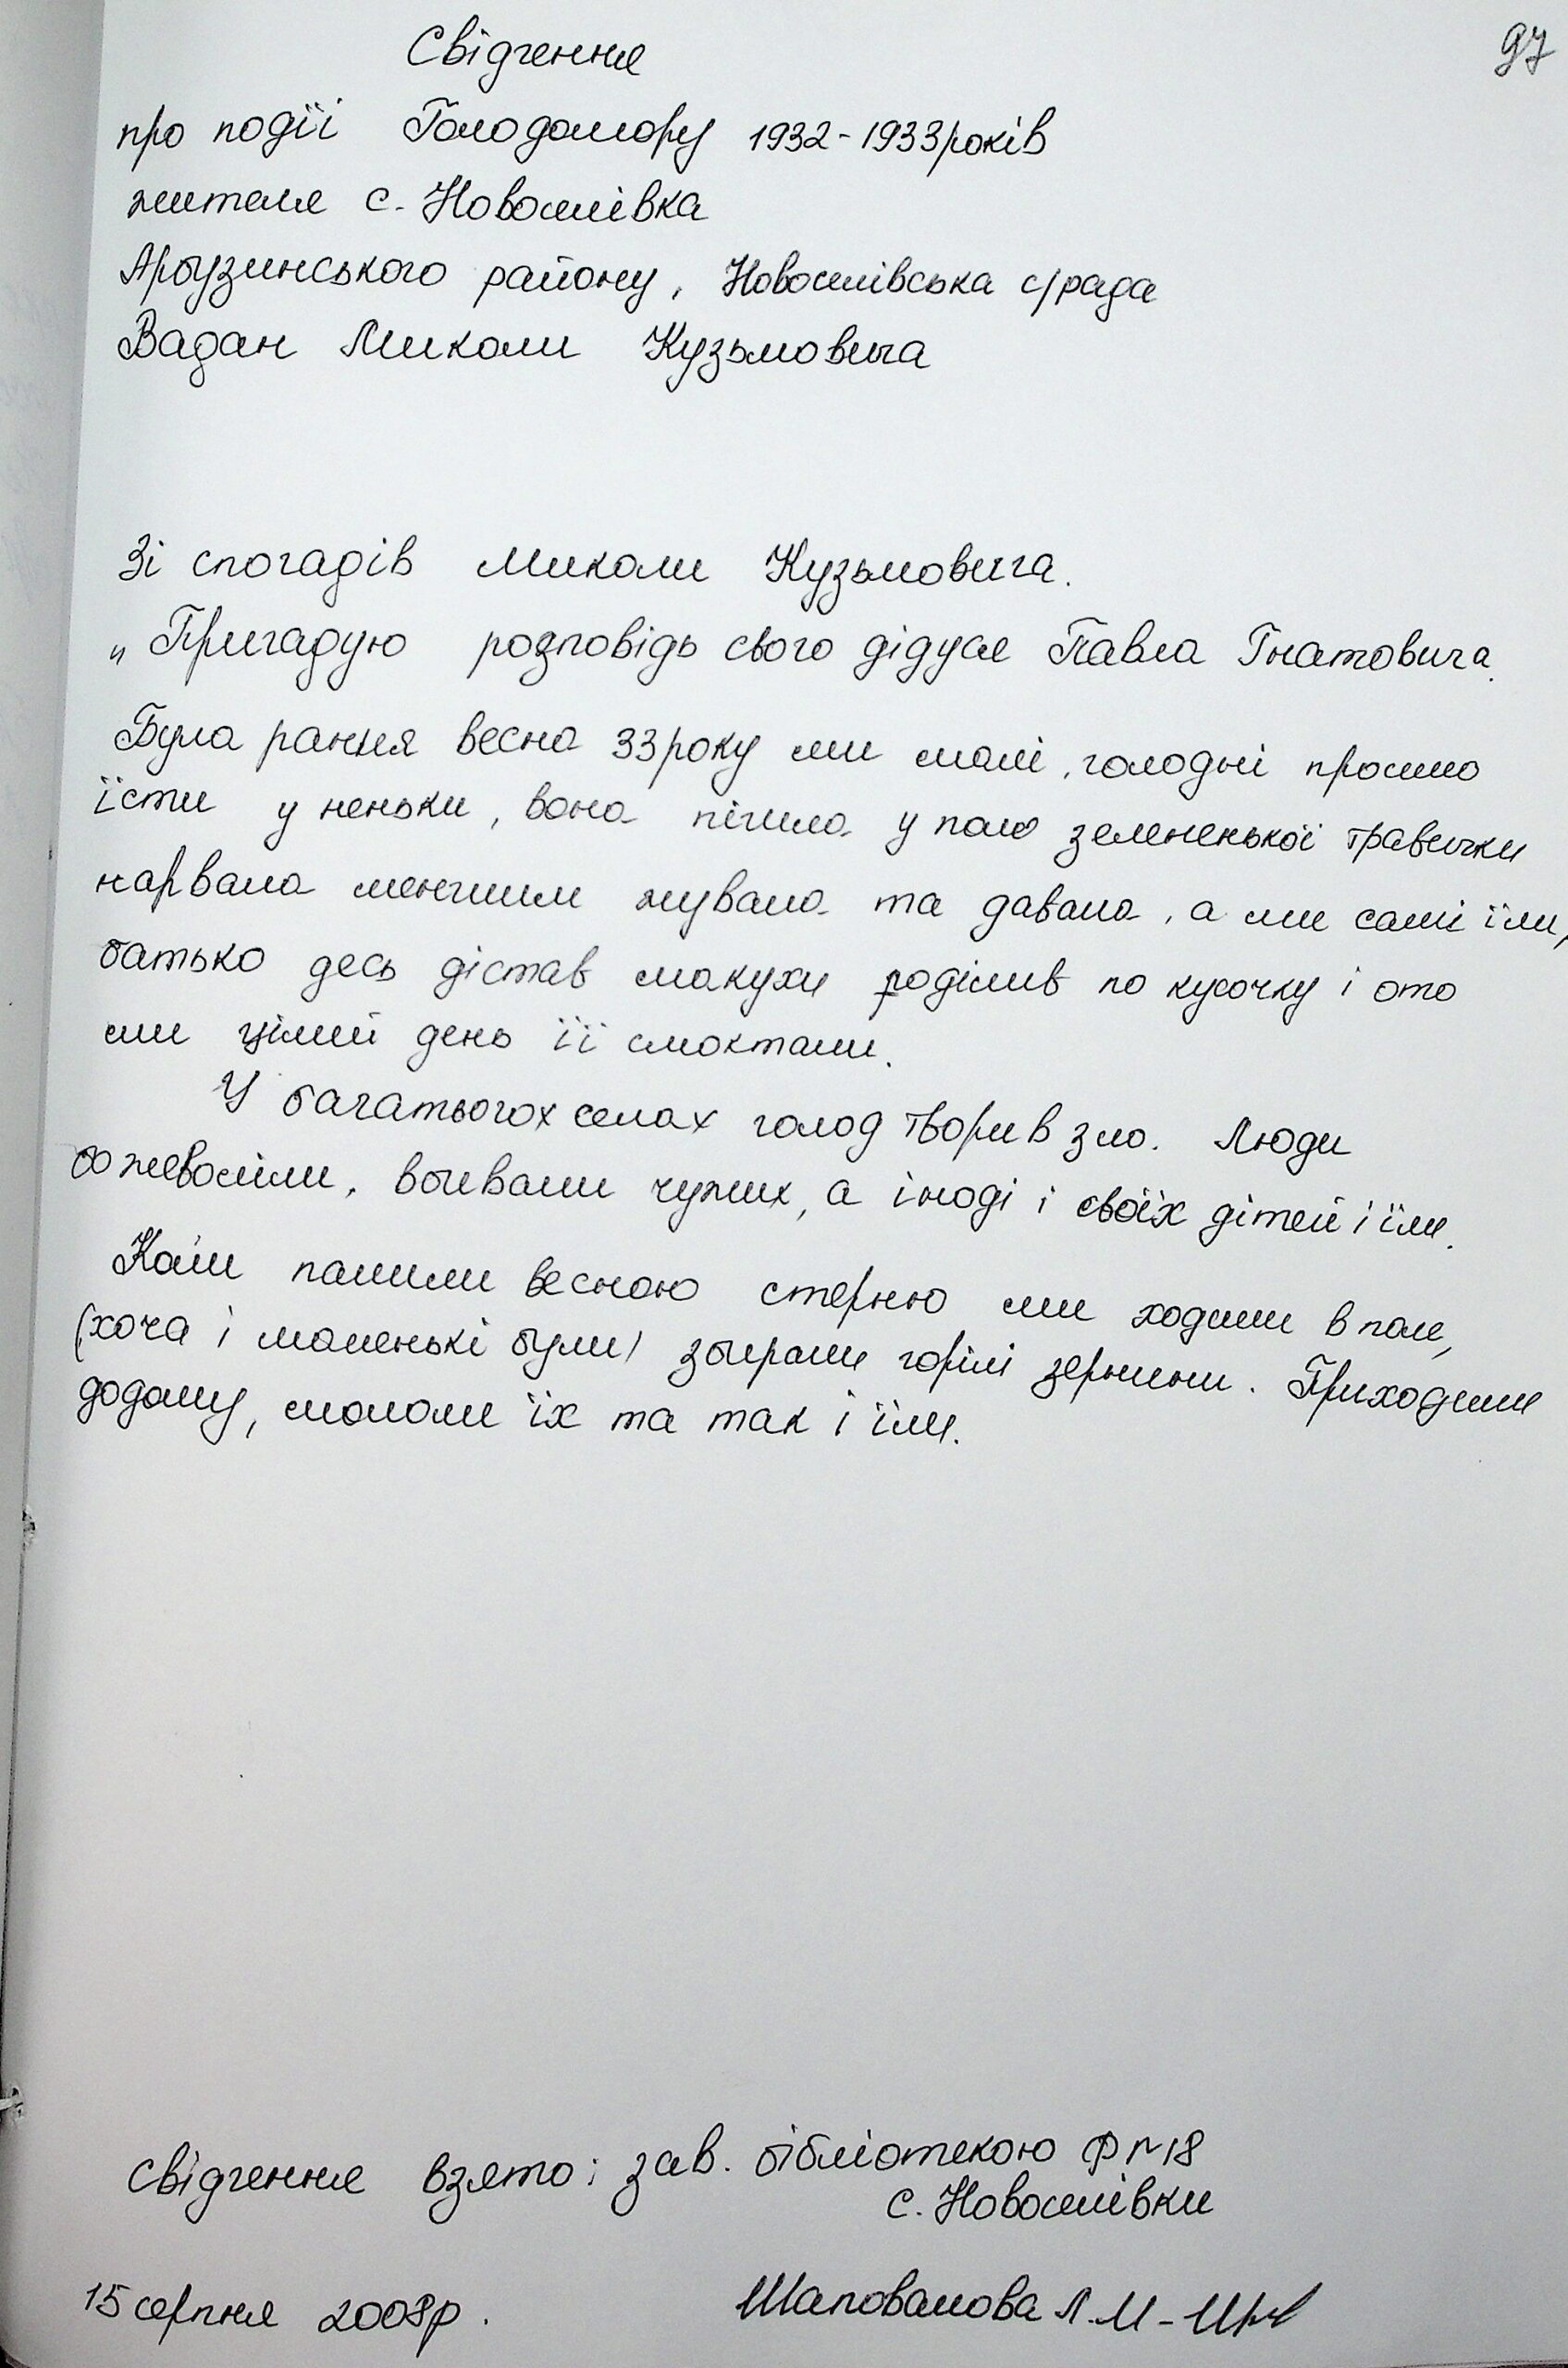 97
Свідчення
про події Голодомору 1932-1933років
жителя с. Новоселівка
Арбузинського району, Новоселівська с/рада
Вадан Миколи Кузьмовича
Зі спогадів Миколи Кузьмовича.
"Пригадую розповідь свого дідуся Павла Гнатовича.
Була рання весна 33року ми малі, голодні просимо
їсти у неньки, вона пішла у поле зелененької травички
нарвала меншим жувала та давала, а ми самі їли,
батько десь дістав макухи поділив по кусочку і ото
ми цілий день її смоктали.
У багатьогох селах голод творив зло. Люди
божеволіли, вбивали чужих, а іноді і своїх дітей і їли.
Коли палили весною стерню ми ходили в поле,
(хоча і маленькі були) збирали горілі зернини. Приходили
додому, мололи їх та так і їли.
Свідчення взято: зав. бібліотекою Ф №18
с. Новоселівки
15 серпня 2008р. Шаповалова Л.М-